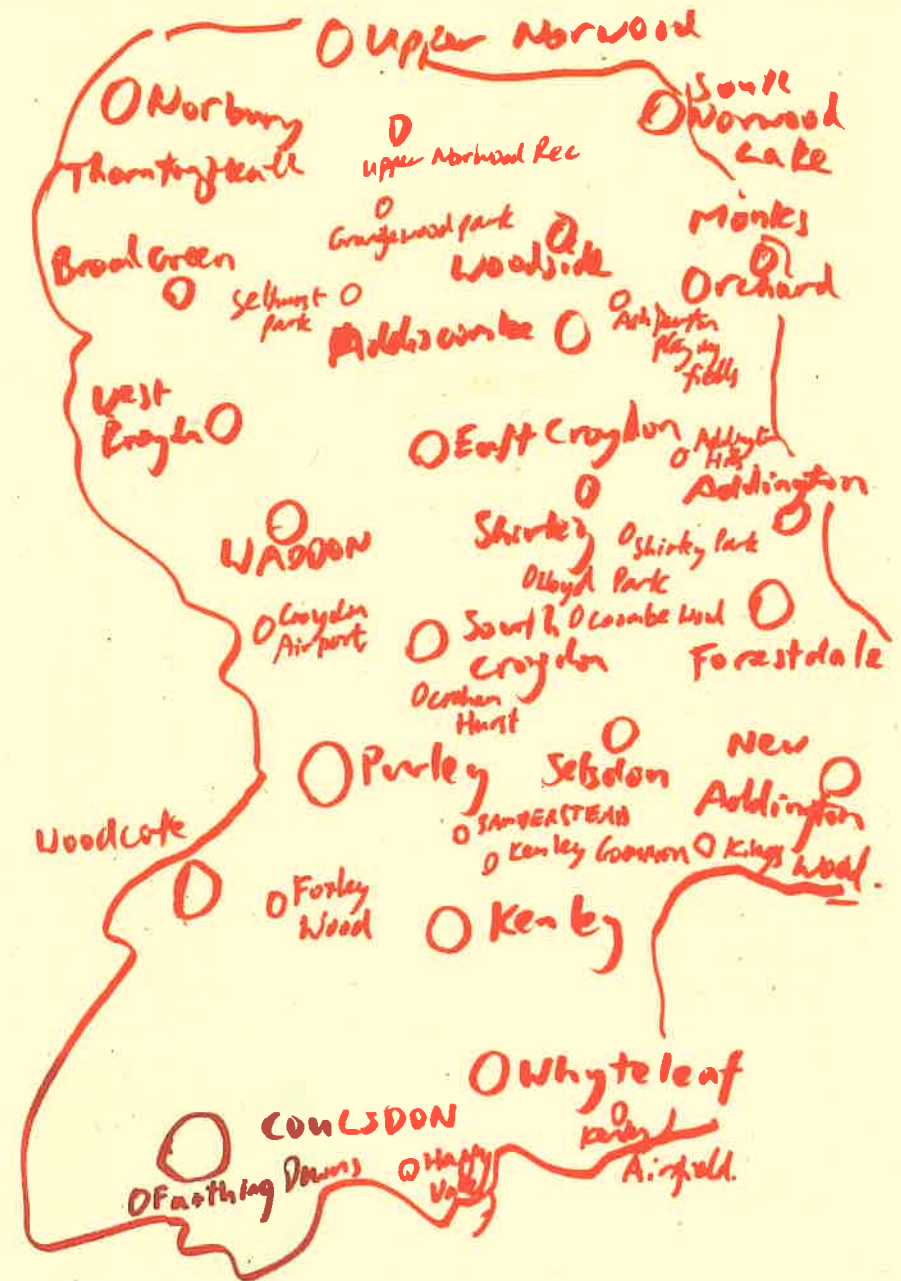 Upper Norwood
Norbury
South
Norwood
Lake
Upper Norwood Rec
Thornton Heath
Grangewood park
Monks
Orchard
Woodside
Broad Green
Selhurst
park
Addiscombe
Ashburton
playing
fields
West
Croydon
East Croydon
Addington
Hills
Addington
WADDON
Shirley
Shirley Park
Lloyd Park
Croydon
Airport
South
Croydon
Coombe Wood
Forestdale
Croham
Hurst
Purley
Selsdon
New
Addington
SANDERSTEAD
Kenley Common
Kings Wood.
Woodcote
Foxley
Wood
Kenley
Whyteleaf
Kenley
Airfield.
COULSDON
Farthing Downs
Happy
Valley